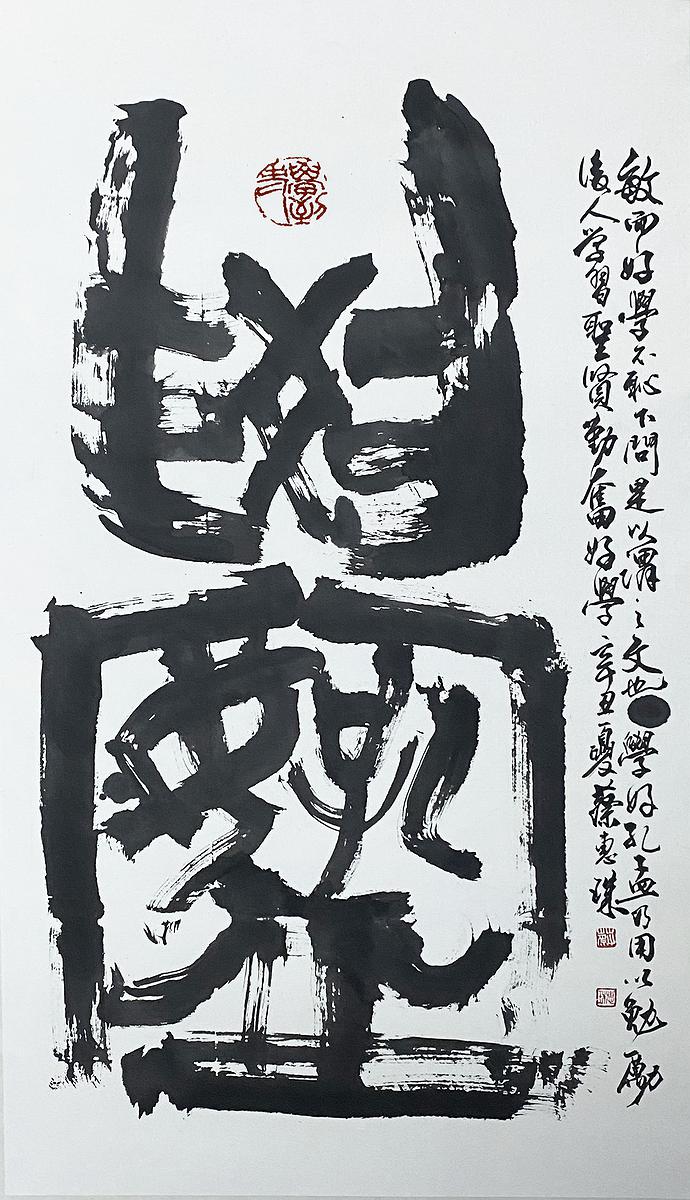 敏而好學不恥下問是以謂之文也學好孔孟乃用以勉勵
後人学習聖賢勤奮好學辛丑夏蔡惠珠